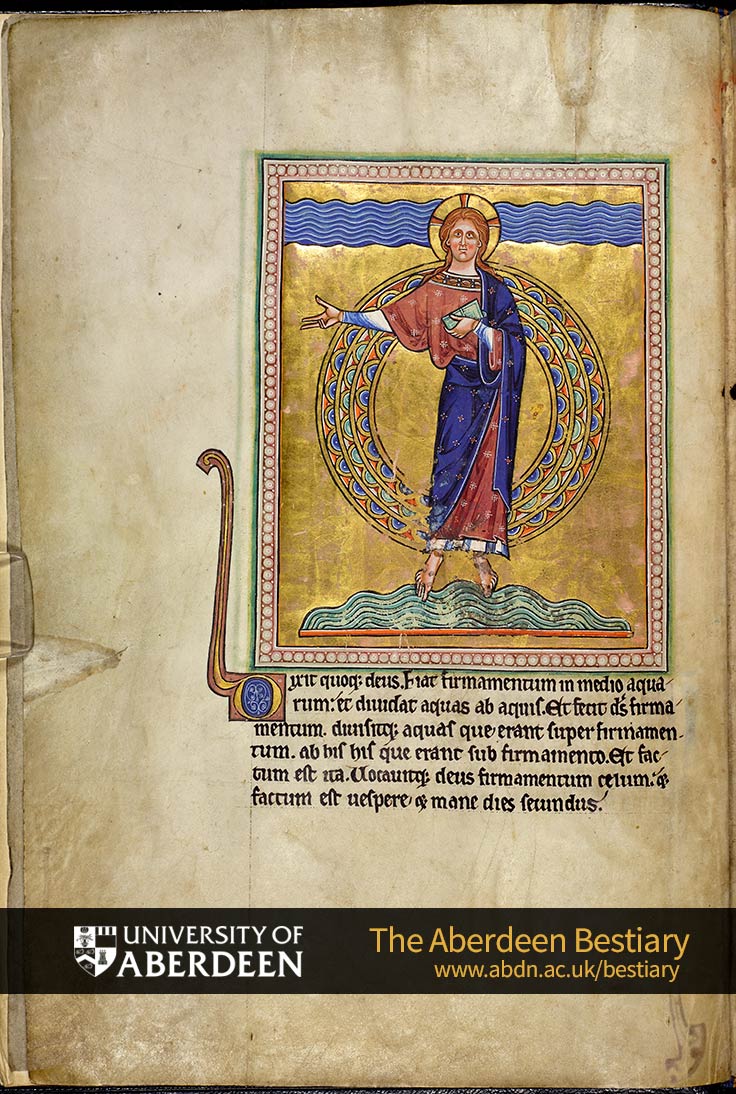 Dixit quoq; deus. Fiat firmamentum in medio aqua
rum: et diuidat aquas ab aquis. Et fecit ds firma
mentum. diuisitq; aquas que erant super firmamen-
tum. ab his his que erant sub firmamento. Et fac-
tum est ita. Uocauitq; deus firmamentum celum: &
factum est uespere & mane dies secundus.
UNIVERSITY OF
ABERDEEN
The Aberdeen Bestiary
www.abdn.ac.uk/bestiary